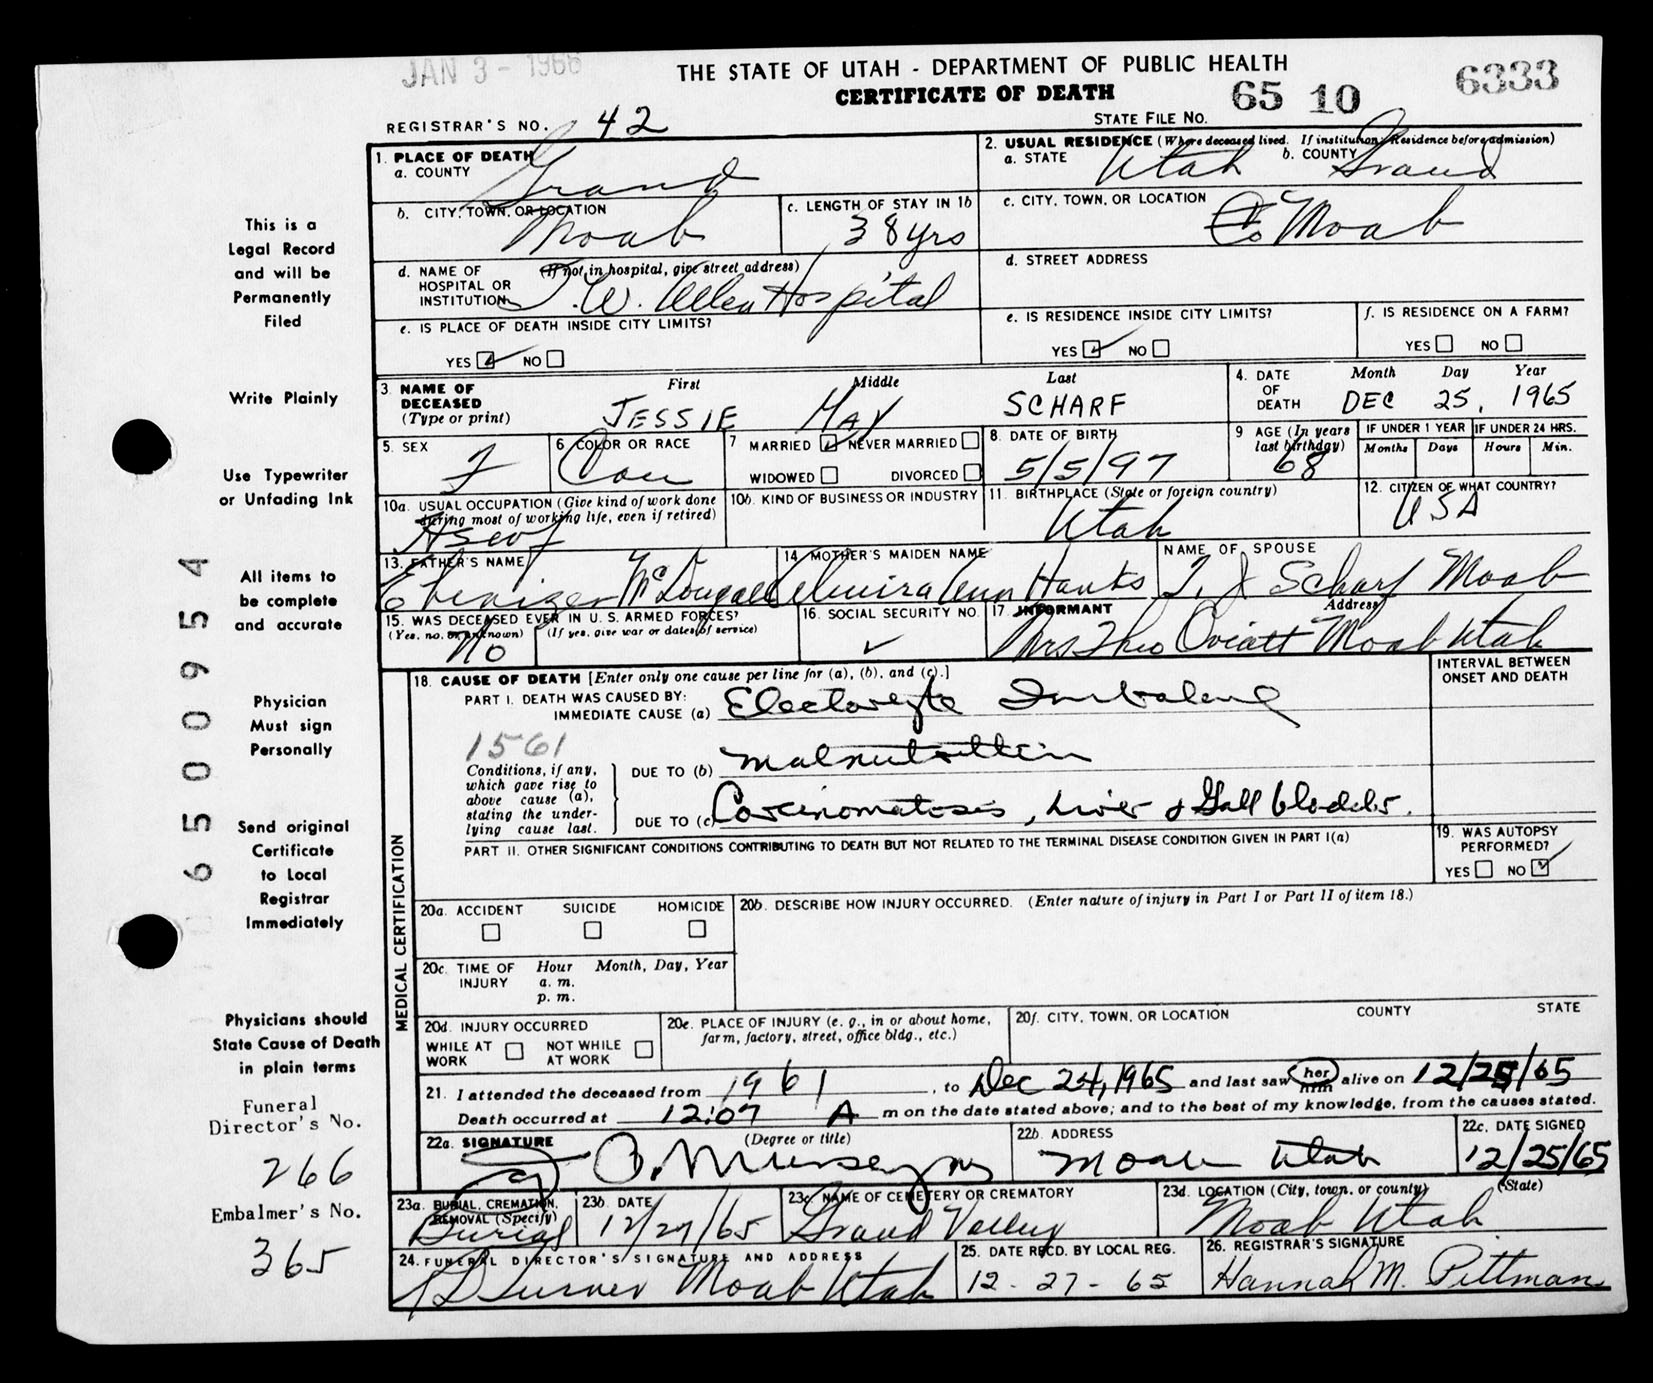 JAN 3 - 1966
THE STATE OF UTAH - DEPARTMENT OF PUBLIC HEALTH
CERTIFICATE OF DEATH
65 10
6333
REGISTRAR'S NO. 42
STATE FILE NO.
1. PLACE OF DEATH
a. COUNTY
Grand
2. USUAL RESIDENCE (Where deceased lived. If institution: Residence before admission)
a. STATE Utah b. COUNTY Grand
b. CITY, TOWN, OR LOCATION
Moab
c. LENGTH OF STAY IN 1b
38 yrs
c. CITY, TOWN, OR LOCATION
Moab
d. NAME OF HOSPITAL OR INSTITUTION
(If not in hospital, give street address)
I.W. Allen Hospital
d. STREET ADDRESS
e. IS PLACE OF DEATH INSIDE CITY LIMITS?
YES NO
e. IS RESIDENCE INSIDE CITY LIMITS?
YES NO
f. IS RESIDENCE ON A FARM?
YES NO
3. NAME OF DECEASED
(Type or print)
First Middle Last
JESSIE MAY SCHARF
4. DATE OF DEATH
Month Day Year
DEC 25, 1965
5. SEX
F
6. COLOR OR RACE
Cau
7 MARRIED NEVER MARRIED
WIDOWED DIVORCED
8. DATE OF BIRTH
5/5/97
9 AGE (In years last birthday)
68
IF UNDER 1 YEAR
Months Days
IF UNDER 24 HRS.
Hours Min.
10a. USUAL OCCUPATION (Give kind of work done during most of working life, even if retired)
Hswf
10b. KIND OF BUSINESS OR INDUSTRY
11. BIRTHPLACE (State or foreign country)
Utah
12. CITIZEN OF WHAT COUNTRY?
USA
13. FATHER'S NAME
Ebenizer McDougall
14. MOTHER'S MAIDEN NAME
Almira Ann Hanks
NAME OF SPOUSE
T. J Scharf Moab
15. WAS DECEASED EVER IN U. S. ARMED FORCES?
(Yes, no, or unknown) (If yes, give war or dates of service)
No
16. SOCIAL SECURITY NO.
17. INFORMANT Address
Mrs Theo Oviatt Moab Utah
MEDICAL CERTIFICATION
18. CAUSE OF DEATH [Enter only one cause per line for (a), (b), and (c).]
INTERVAL BETWEEN ONSET AND DEATH
PART I. DEATH WAS CAUSED BY:
IMMEDIATE CAUSE (a) Electrolyte Imbalance
1561
Conditions, if any, which gave rise to above cause (a), stating the underlying cause last.
DUE TO (b) Malnutrition
DUE TO (c) Carcinomatosis, Liver & Gall bladder.
PART II. OTHER SIGNIFICANT CONDITIONS CONTRIBUTING TO DEATH BUT NOT RELATED TO THE TERMINAL DISEASE CONDITION GIVEN IN PART I(a)
19. WAS AUTOPSY PERFORMED?
YES NO
20a. ACCIDENT SUICIDE HOMICIDE
20b. DESCRIBE HOW INJURY OCCURRED. (Enter nature of injury in Part I or Part II of item 18.)
20c. TIME OF INJURY
Hour Month, Day, Year
a. m.
p. m.
20d. INJURY OCCURRED
WHILE AT WORK NOT WHILE AT WORK
20e. PLACE OF INJURY (e. g., in or about home, farm, factory, street, office bldg., etc.)
20f. CITY, TOWN, OR LOCATION COUNTY STATE
21. I attended the deceased from 1961, to Dec 24, 1965 and last saw her him alive on 12/25/65
Death occurred at 12:07 A m on the date stated above; and to the best of my knowledge, from the causes stated.
22a. SIGNATURE (Degree or title)
22b. ADDRESS
Moab Utah
22c. DATE SIGNED
12/25/65
23a. BURIAL, CREMATION, REMOVAL (Specify)
Burial
23b. DATE
12/27/65
23c. NAME OF CEMETERY OR CREMATORY
Grand Valley
23d. LOCATION (City, town, or county) (State)
Moab Utah
24. FUNERAL DIRECTOR'S SIGNATURE AND ADDRESS
Turner Moab Utah
25. DATE RECD. BY LOCAL REG.
12-27-65
26. REGISTRAR'S SIGNATURE
Hannah M. Pittman
This is a
Legal Record
and will be
Permanently
Filed
Write Plainly
Use Typewriter
or Unfading Ink
All items to
be complete
and accurate
Physician
Must sign
Personally
Send original
Certificate
to Local
Registrar
Immediately
Physicians should
State Cause of Death
in plain terms
Funeral
Director's No.
266
Embalmer's No.
365
6500954